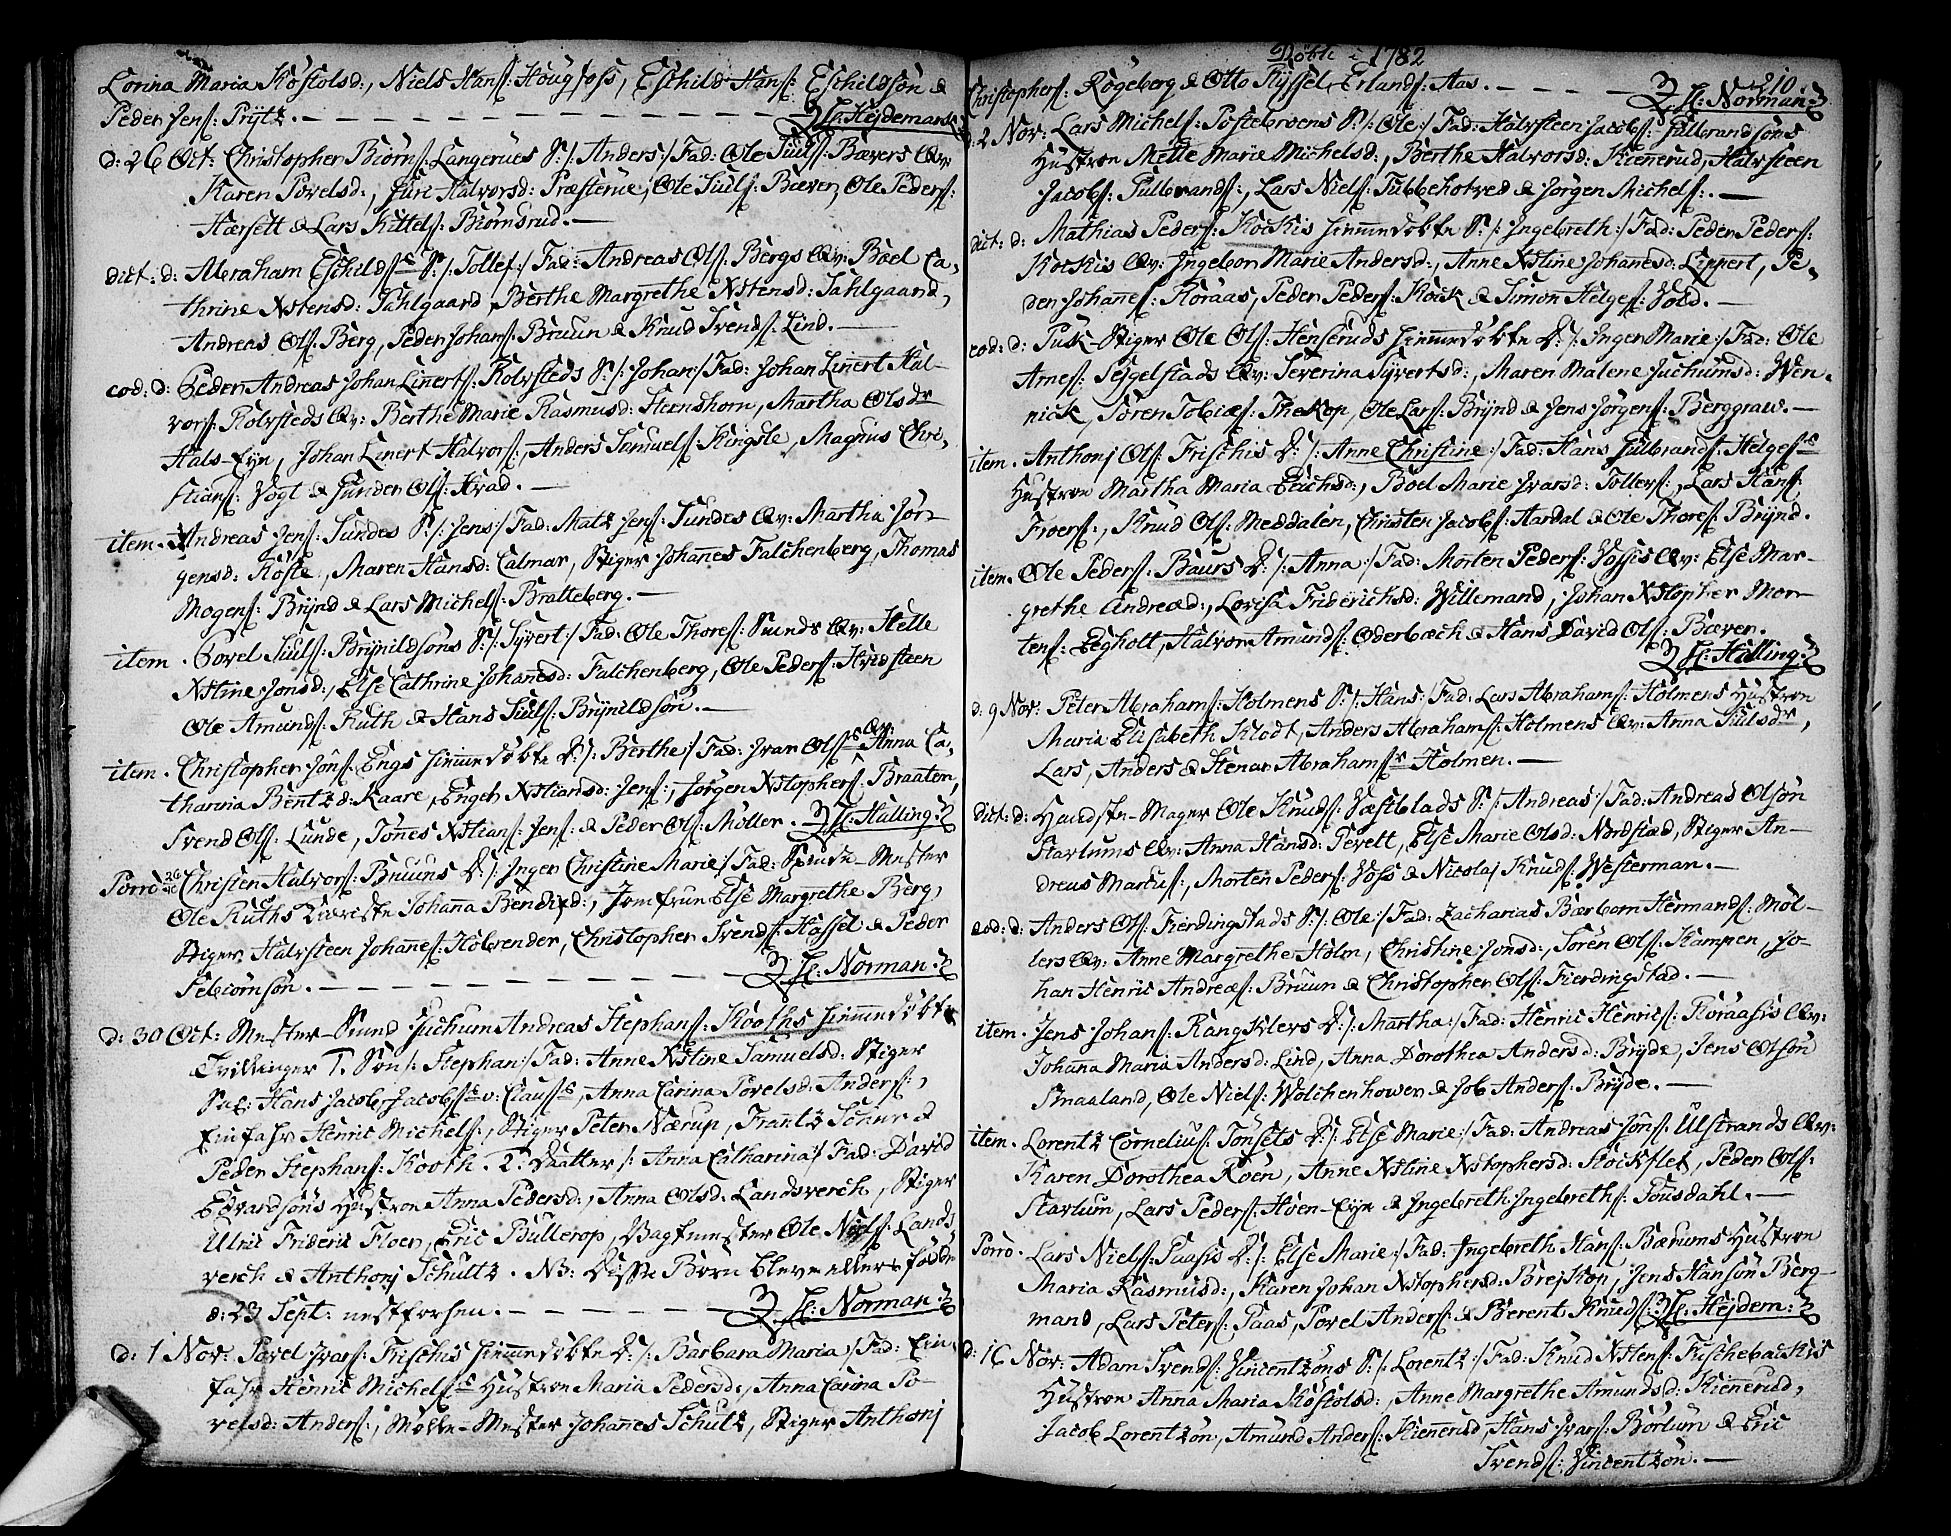 Lorina Maria Kostolsd:, Niels Hans: Hougfoss, Eschild Hans: Eschildsön &
Peder Jens: Prÿtz. — — — — H: Heÿdeman:
d: 26 Oct: Christopher Biörns: Langerues S: /: Anders :/ Fad: Ole Juuls: Bævers Qv:
Karen Povelsd:, Juri Halvorsd: Præsterue, Ole Juuls: Bæver, Ole Peders:
Harsett & Lars Kittels: Biörnsrud. —
dict: d: Abraham Eschilds: S: /: Tollef :/ Fad: Andreas Ols: Bergs Qv: Boel Ca,
thrine Xstensd: Dahlgaard, Berthe Margrethe Xstensd: Dahlgaard,
Andreas Ols: Berg, Peder Johans: Bruun & Knud Svends: Lind. —
eod: d: Peder Andreas Johan Linerts: Rolvsteds S: /: Johan :/ Fad: Johan Linert Hal-
vors: Rolvsteds Qv: Berthe Marie Rasmusd: Hernshorn, Martha Olsdr
Hals-Eyn, Johan Linert Halvors:, Anders Samuels: Kingsle, Magnus Chri-
stians: Vogt & Gunder Ols: Hvad. —
item. Andreas Jens: Sundes S: /: Jens :/ Fad: Matz Jens: Sundes Qv: Martha Jör-
gensd: Koste, Maren Hansd: Calmar, Stiger Johanes Falchenberg, Thomas
Mogens: Brÿnd & Lars Michels: Bratteberg. —
item. Povel Juuls: Brÿnildsöns S: /: Syvert :/ Fad: Ole Thores: Sunds Qv: Helle
Xstine Jonsd:, Else Cathrine Johanesd: Falchenberg, Ole Peders: Hvidsteen
Ole Amunds: Ruth & Hans Juuls: Brÿnildsön. —
item. Christopher Jöns: Engs hiemmedöbte D: /: Berthe :/ Fad: Ivar Ols: Qv: Anna Ca,
tharina Bentzd: Kaare, Engeb Xstiansd: Jens:, Jörgen Xstophers: Braaten,
Svend Ols: Lunde, Tönes Xstians: Jens: & Peder Ols: Möller. H: Halling:
Porro 26 Christen Halvors: Bruuns D: /: Inger Christine Marie :/ Fad: Mester
Ole Ruths Kæriste Johana Bendixd:, Jomfrue Else Margrethe Berg,
Stiger Halvsteen Johanes: Hobrender, Christopher Svends: Hassel & Peder
Sebiörnsön. — — — — H: Norman:
d: 30 Oct: Mester-Svend Juchum Andreas Stephans: Kooths hiemmedöbte
Tvillinger 1. Sön /: Stephan :/ Fad: Anne Xstine Samuelsd: Stiger
Hans Jacob Jacobs: v: Claus:, Anna Carina Povelsd: Anders:,
Einfahr Henric Michels:, Stiger Peter Nærup, Frantz Stener &
Peder Stephans: Kooth. 2. Daatter /: Anna Catharina :/ Fad: David
Edvardsöns Hustroe Anna Pedersd:, Anna Olsd: Landsverch, Stiger
Ulric Frideric Floer, Eric Bullerop, Vagtmester Ole Niels: Lands,
verch & Anthonj Schultz. NB: Disse Börn bleve ellers födde
d: 23 Sept: nestforhen. — — — — H: Norman:
d: 1 Nov: Povel Ivars: Frischis hiemmedöbte D: /: Barbara Maria :/ Fad: Ein,
fahr Henric Michels: Hustroe Maria Pedersd:, Anna Carina Po-
velsd: Anders:, Mölle-Mester Johanes Schultz, Stiger Anthonj
Döbte i 1782
210.
Christophers: Rögeberg & Otto Ryssel, Erlands: Aas. — — H: Norman:
d: 2 Nov: Lars Michels: Postebroens S: /: Ole :/ Fad: Halvsteen Jacobs: Gulbrandsöns
Hustroe Mette Marie Michelsd:, Berthe Halvorsd: Kienerud, Halvsteen
Jacobs: Gulbrands:, Lars Niels: Tubbehotved & Jörgen Michels: —
dict: d: Mathias Peders: Kockis hiemmedöbte S: /: Ingebreth :/ Fad: Peder Peders:
Kockis Qv: Ingebor Marie Andersd:, Anne Xstine Johanesd: Lippert, Pe-
der Johanes: Koraas, Peder Peders: Kock & Simon Helges: Vold. —
eod: d: Puk-Stiger Ole Ols: Henseruds hiemmedöbte D: /: Inger Marie :/ Fad: Ole
Arnes: Teÿgelstads Qv: Severina Syvertsd:, Maren Malene Juchumsd: Wen-
nick, Sören Tobiæs: Thekop, Ole Lars: Brÿnd & Jens Jörgens: Berggraw. —
item. Anthonj Ols: Frischis D: /: Anne Christine :/ Fad: Hans Gulbrands: Helges:
Hustroe Martha Maria Erichsd:, Boel Marie Ivarsd: Tollevs:, Lars Hans:
Froers:, Knud Ols: Meddalen, Christen Jacobs: Aardal & Ole Thores: Brÿnd.
item. Ole Peders: Baurs D: /: Anna :/ Fad: Morten Peders: Vossis Qv: Else Mar-
grethe Andreæd:, Lovisa Friderichsd: Willemand, Johan Xstopher Mor-
tens: Eegholt, Halvor Amunds: Oderbæch & Hans David Ols: Bæver.
H: Halling:
d: 9 Nov: Peter Abrahams: Holmens S: /: Hans :/ Fad: Lars Abrahams: Holmens Hustroe
Maria Elisabeth Klodt, Anders Abrahams: Holmens Qv: Anna Juulsdr,
Lars, Anders & Stenar Abrahams: Holmen. —
dict: d: Handske-Mager Ole Knuds: Væstblads S: /: Andreas :/ Fad: Andreas Olsön
Starlums Qv: Anna Hansd: Tevett, Else Marie Olsd: Nordstad, Stiger An-
dreas Marcus:, Morten Peders: Voss & Nicolaj Knuds: Westerman. —
eod: d: Anders Ols: Fierdingstads S: /: Ole :/ Fad: Zacharias Bærbom Hermands: Möl-
lers Qv: Anne Margrethe Holm, Christine Jonsd:, Sören Ols: Kampen, Jo-
han Henric Andreæs: Bruun & Christopher Ols: Fierdingstad. —
item. Jens Johans: Rangsklevs D: /: Martha :/ Fad: Henric Henrics: Roraasis Qv:
Johana Maria Andersd: Lind, Anna Dorothea Andersd: Brÿde, Jens Olsön
Smaaland, Ole Niels: Wolchenhower & Job Anders: Brÿde. —
item. Lorentz Cornelius: Tonsets D: /: Else Marie :/ Fad: Andreas Jöns: Ulstrands Qv:
Karen Dorothea Koen, Anne Xstine Xstophersd: Stockflet, Peder Ols:
Starlum, Lars Peders: Hoen-Eyn & Ingebreth Ingebreths: Tousdahl. —
Porro. Lars Niels: Paasis D: /: Else Marie :/ Fad: Ingebreth Hans: Bærums Hustroe
Maria Rasmusd:, Karen Johan Xstophersd: Brejkop, Jens Hansön Berg-
mand, Lars Peters: Paas, Povel Anders: & Berent Knuds: H: Hejdem:
d: 16 Nov: Adam Svends: Vincentzöns S: /: Lorentz :/ Fad: Knud Xstens: Fischebackis
Hustroe Anna Maria Kostolsd:, Anne Margrethe Amundsd: Kienerud,
Jacob Lorentzön, Amund Anders: Kienerud, Hans Ivars: Börlum & Eric
Svends: Vincentzön. —